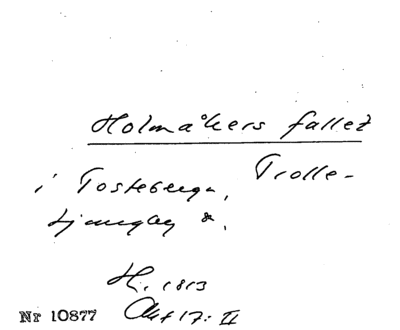 Holmåkers fallet
i Tosteberga, Trolle-
Ljungby s.
H. 1813
Akt 17: II
Nr 10877